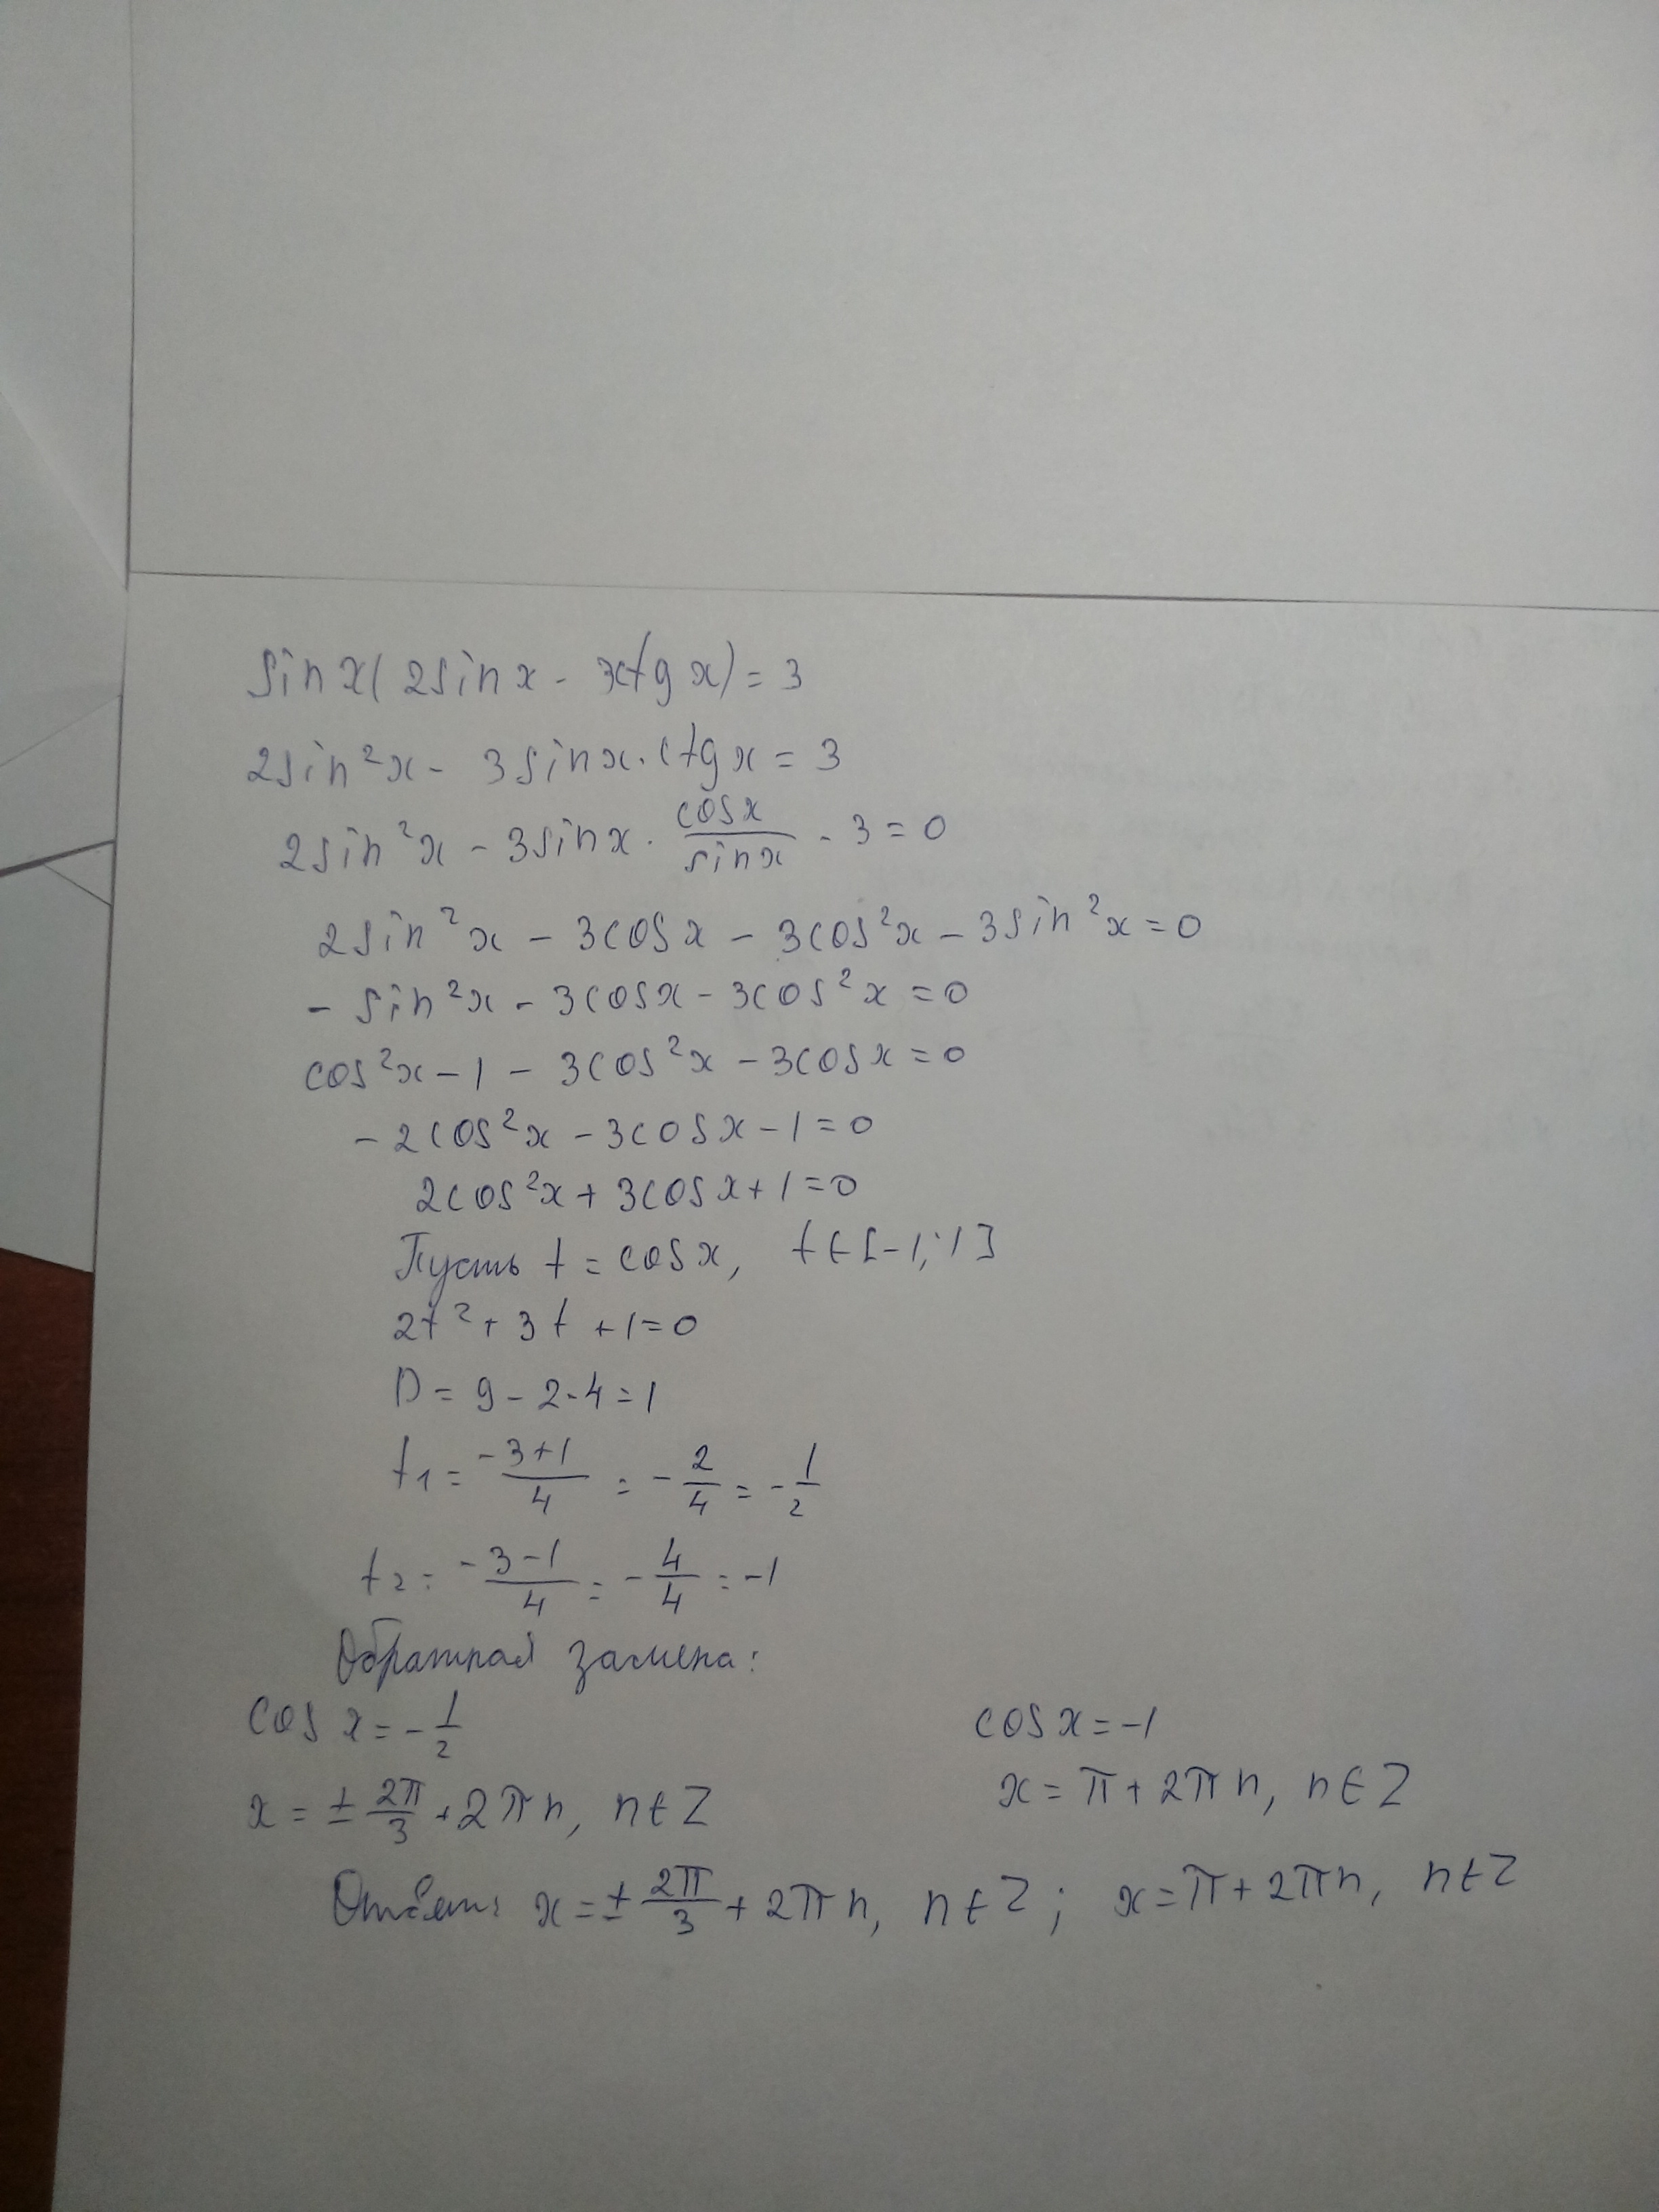 sin x( 2sin x - 3ctg x) = 3
2sin²x - 3sinx · ctg x = 3
2sin²x - 3sinx · cosx/sinx - 3 = 0
2sin²x - 3cosx - 3cos²x - 3sin²x = 0
- sin²x - 3cosx - 3cos²x = 0
cos²x - 1 - 3cos²x - 3cosx = 0
- 2cos²x - 3cosx - 1 = 0
2cos²x + 3cosx + 1 = 0
Пусть t = cosx, t ∈ [-1; 1]
2t² + 3t + 1 = 0
D = 9 - 2·4 = 1
t₁ = -3+1/4 = -2/4 = -1/2
t₂ = -3-1/4 = -4/4 = -1
Обратная замена:
cos x = -1/2 cosx = -1
x = ± 2π/3 + 2πn, n ∈ Z x = π + 2πn, n ∈ Z
Ответ: x = ± 2π/3 + 2πn, n ∈ Z; x = π + 2πn, n ∈ Z